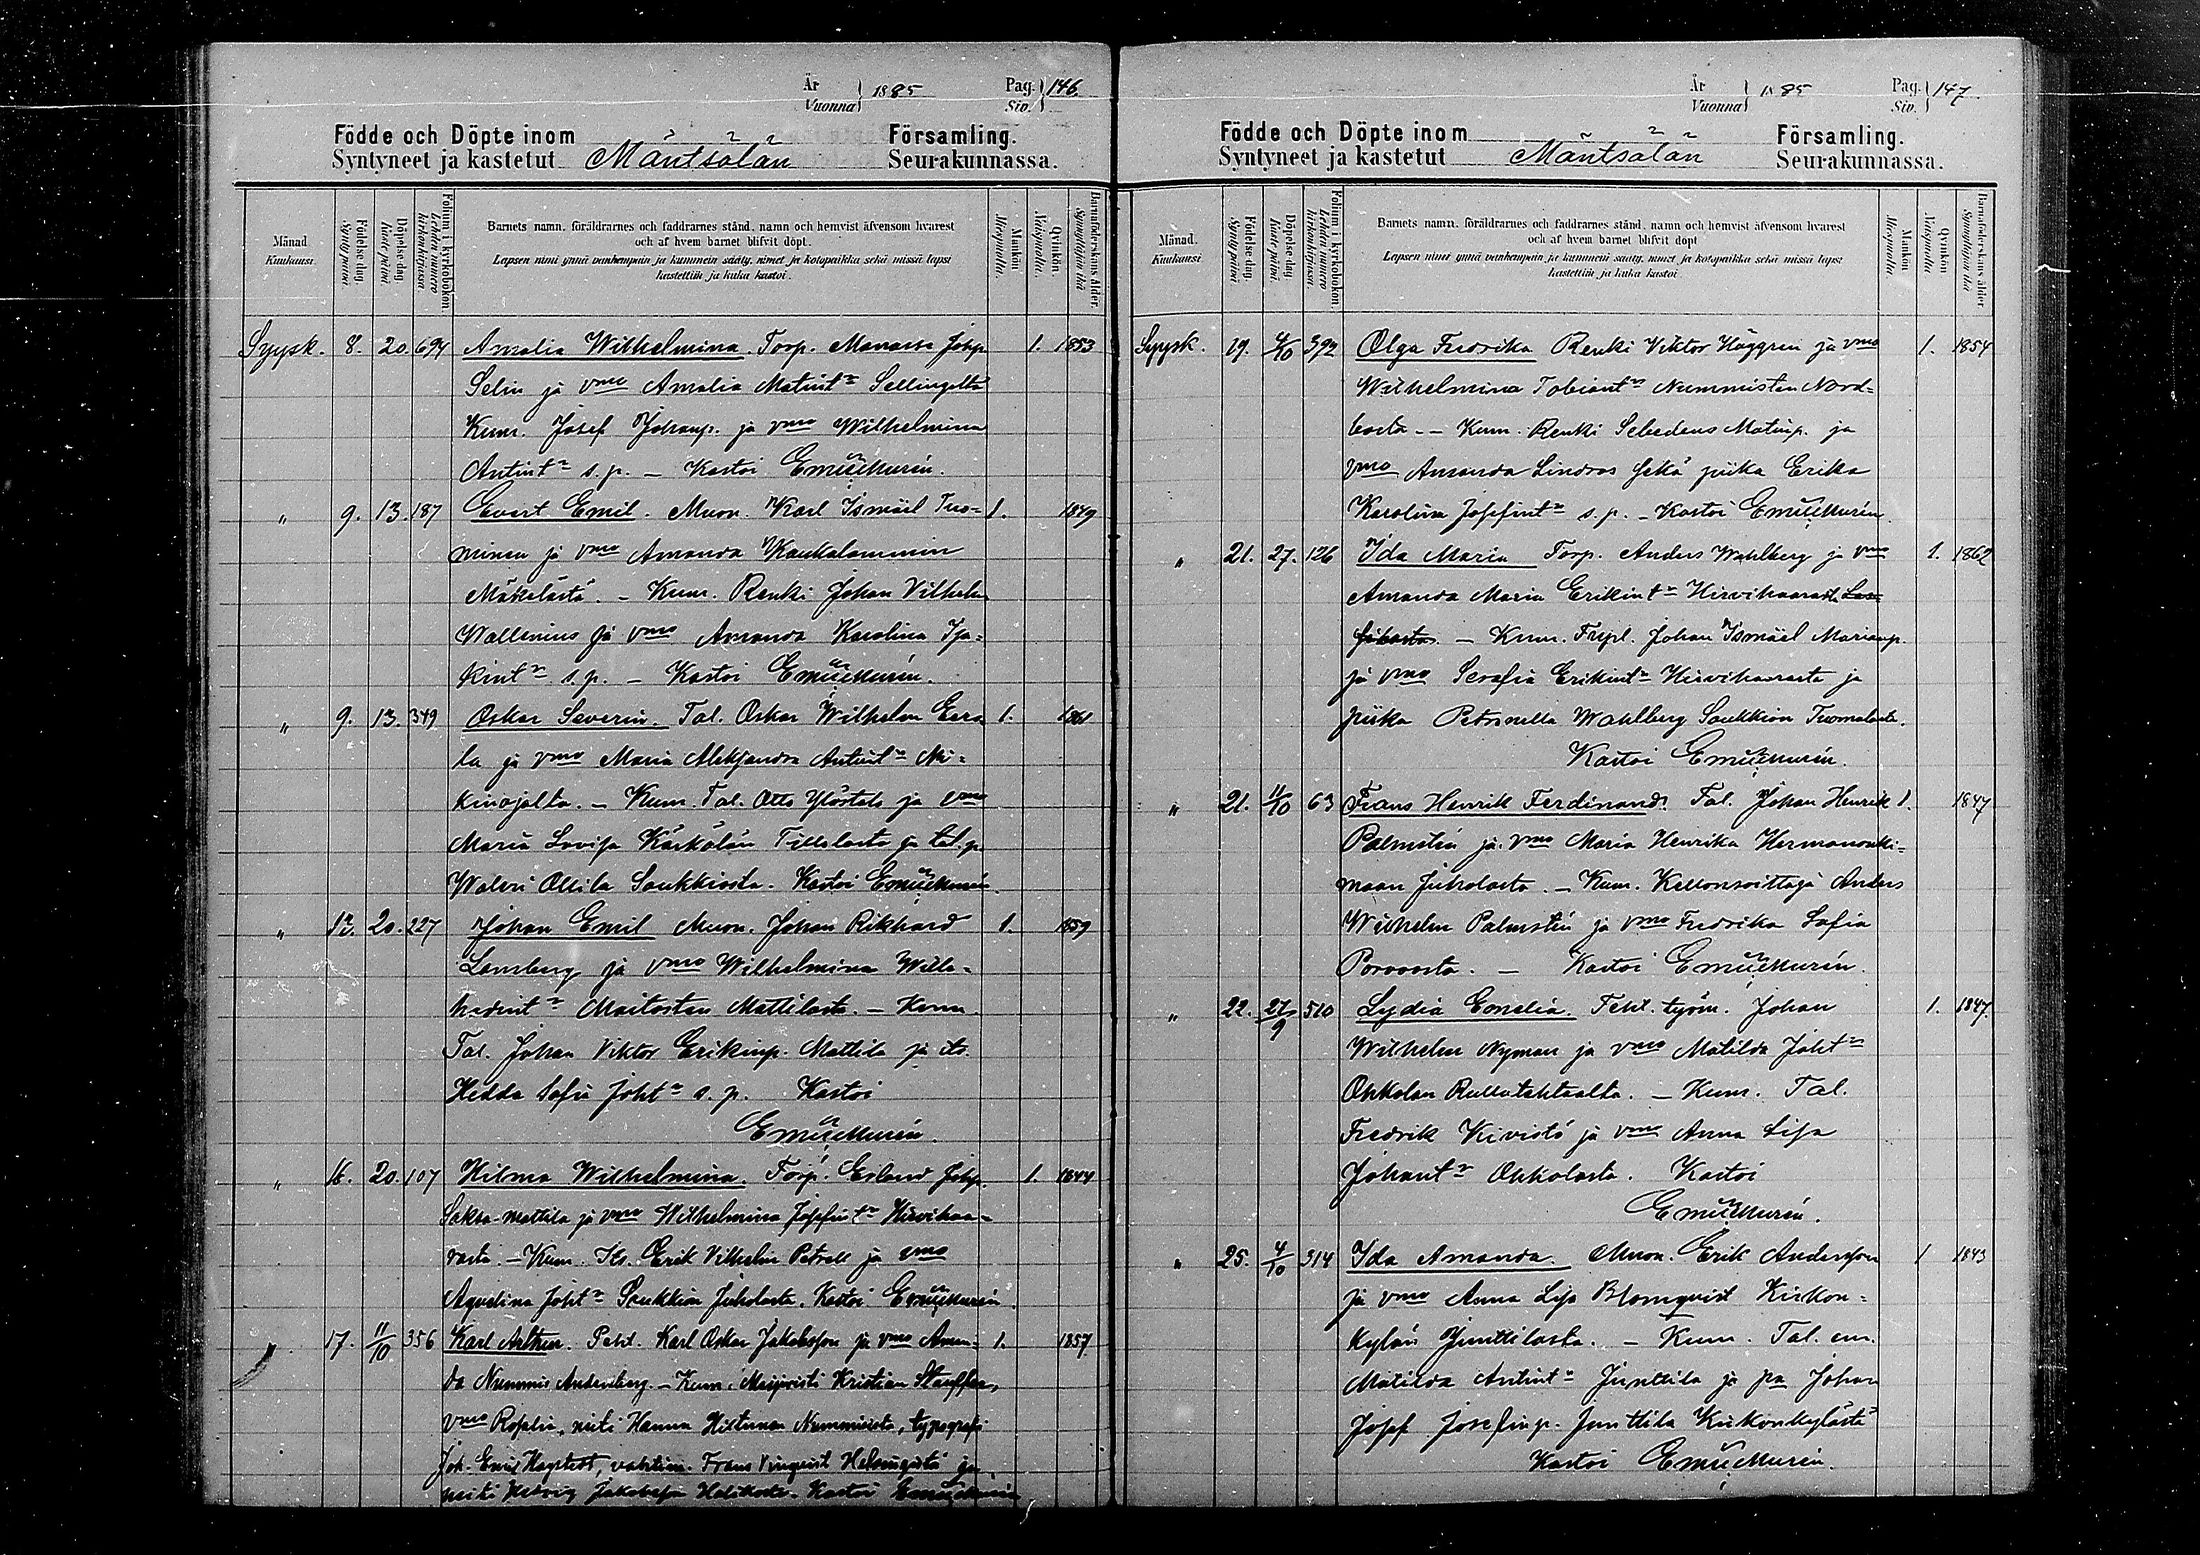 År
Vuonna 1885
Pag.
Siv. 146.
Födde och Döpte inom Församling.
Syntyneet ja kastetut Mäntsälän Seurakunnassa.
Månad. Kuukausi.
Födelse dag. Syntypäivä
Döpelse dag. Kastepäivä
Folium i kyrkoboken. Lehden numero kirkonkirjassa
Barnets namn, föräldrarnes och faddrarnes stånd, namn och hemvist äfvensom hvarest
och af hvem barnet blifvit döpt.
Lapsen nimi ynnä vanhempain ja kummein sääty, nimet ja kotopaikka sekä missä lapsi
kastettiin ja kuka kastoi.
Mankön Miespuolia.
Qvinkön. Naispuolia.
Barnaföderskans ålder. Synnyttäjän ikä
Syysk. 8. 20. 694 Amalia Wilhelmina. Torp. Manasse Johp. 1. 1853
Selin ja vmo Amalia Matint:r Sellingeltä
Kum. Josef Johanp. ja vmo Wilhelmina
Antint:r s.p. – Kastoi Emil Murén.
" 9. 13. 187 Evert Emil. Muon. Karl Ismäil Tuo= 1. 1849
minen ja vmo Amanda Kaukalammin
Mäkelästä. – Kum. Renki Johan Vilhelm
Wallenius ja vmo Amanda Karolina Isa=
kint:r s.p. – Kastoi Emil Murén.
" 9. 13. 349 Oskar Severin. Tal. Oskar Wilhelm Eero 1. 1861
la ja vmo Maria Aleksandra Antint:r Mi=
kinojalta. – Kum. Tal. Otto Ylöstalo ja vmo
Maria Lovisa Kärkölän Tillolasta ja tal. p.
Walvri Ollila Saukkiosta. Kastoi Emil Murén.
" 12. 20. 227 Johan Emil Muon. Johan Rikhard 1. 1859
Lemberg ja vmo Wilhelmina Wille=
hadint:r Maitosten Mattilasta. – Kum.
Tal. Johan Viktor Erikinp. Mattila ja its.
Hedda Sofia Joht:r s.p. Kastoi
Emil Murén.
" 16. 20. 107 Hilma Wilhelmina. Torp. Erland Johp. 1. 1844
Saksa-Mattila ja vmo Wilhelmina Josefint:r Hirvihaa=
rasta. – Kum. Its. Erik Vilhelm Petrell ja vmo
Agvelina Joht:r Saukkion Juholasta. Kastoi Emil Murén.
17. 11/10 356 Karl Arthur. Pehl. Karl Oskar Jakobsson ja vmo Aman= 1. 1857
da Nummis Andersberg. – Kum. Meijeristi Kristian Stauffer,
vmo Rosalia, neiti Hanna Hirtunen Nummisista, typografi
Joh. Emil Hagstedt, vahtim. Frans Vinqvist Helsingistä ja
neiti Hedvig Jakobsson Halikosta. Kastoi Emil Murén
År
Vuonna 1885
Pag.
Siv. 147
Födde och Döpte inom Församling.
Syntyneet ja kastetut Mäntsälän Seurakunnassa.
Månad. Kuukausi.
Födelse dag. Syntypäivä
Döpelse dag. Kastepäivä.
Folium i kyrkoboken. Lehden numero kirkonkirjassa.
Barnets namn, föräldrarnes och faddrarnes stånd, namn och hemvist äfvensom hvarest
och af hvem barnet blifvit döpt
Lapsen nimi ynnä vanhempain ja kummein sääty, nimet ja kotopaikka sekä missä lapsi
kastettiin ja kuka kastoi.
Mankön Miespuolia.
Qvinkön Naispuolia.
Barnaföderskans ålder Synnyttäjän ikä
Syysk. 19. 4/10 392 Olga Fredrika Renki Viktor Häggren ja vmo 1. 1854
Wilhelmina Tobiant:r Nummisten Nord=
bosta. – Kum. Renki Sebedeus Matinp. ja
vmo Amanda Lindroos sekä piika Erika
Karolina Josefint:r s.p. – Kastoi Emil Murén.
" 21. 27. 126 Ida Maria Torp. Anders Wahlberg ja vmo 1. 1862
Amanda Maria Erikint:r Hirvihaarasta
– Kum. Tnpl. Johan Ismäel Marianp.
ja vmo Serafia Erikint:r Hirvihaarasta ja
piika Petronella Wahlberg Saukkion Tuomalasta.
Kastoi Emil Murén.
" 21. 11/10 63 Frans Henrik Ferdinand. Tal. Johan Henrik 1. 1847
Palmstén ja vmo Maria Henrika Hermanonki=
maan Juholasta. – Kum. Kellonsoittaja Anders
Wilhelm Palmstén ja vmo Fredrika Sofia
Porvoosta. – Kastoi Emil Murén.
" 22. 27/9 510 Lydia Emelia. Teht. työm. Johan 1. 1847
Wilhelm Nyman ja vmo Matilda Joht:r
Ohkolan Rullatehtaalta. – Kum. Tal.
Fredrik Kivistö ja vmo Anna Lisa
Johant:r Ohkolasta. Kastoi
Emil Murén.
" 25. 4/10 314 Ida Amanda. Muon. Erik Andersson 1 1843
ja vmo Anna Lisa Blomqvist Kirkon=
kylän Junttilasta. – Kum. Tal. em.
Matilda Antint:r Junttila ja pa Johan
Josef Josefinp. Junttila Kirkonkylästä
Kastoi Emil Murén.